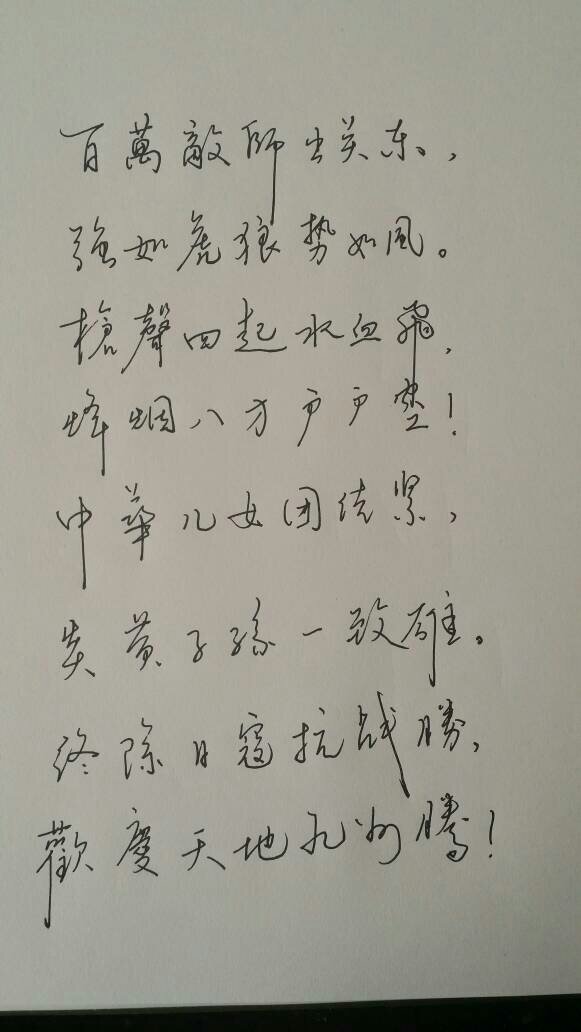 百萬敵師出关东，
強如虎狼势如風。
槍聲四起水血飛，
烽烟八方户户空！
中華儿女团结紧，
炎黄子孫一致雄。
终除日寇抗战勝，
歡慶天地九州騰！